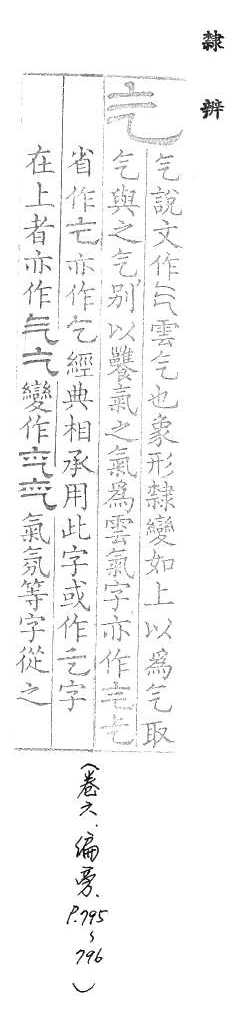 隸辨
气
气說文作气雲气也象形隸變如上以爲气取
气與之气別以䉵氣之氣爲雲氣字亦作
省作亦作乞經典相承用此字或作字
在上者亦作气變作氣氛等字從之
(卷六.偏旁.
P.795
~
796
)